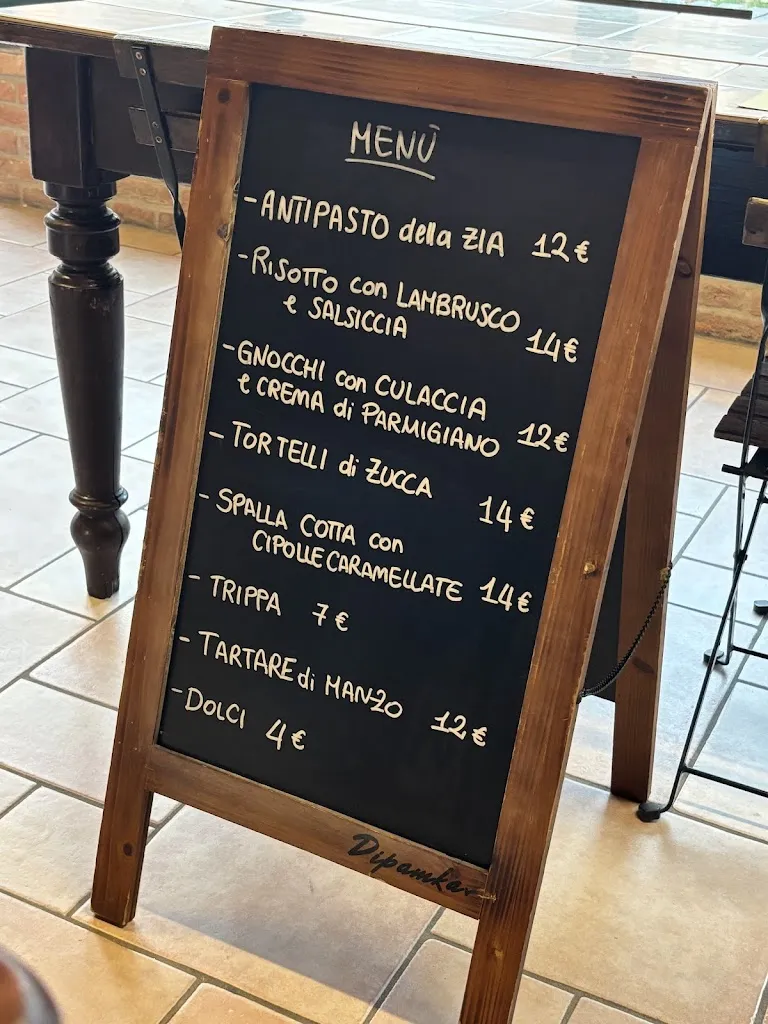 MENÙ
- ANTIPASTO della ZIA 12€
- RISOTTO con LAMBRUSCO
e SALSICCIA 14€
- GNOCCHI con CULACCIA
e CREMA di PARMIGIANO 12€
- TORTELLI di ZUCCA 14€
- SPALLA COTTA con
CIPOLLE CARAMELLATE 14€
- TRIPPA 7€
- TARTARE di MANZO 12€
- DOLCI 4€